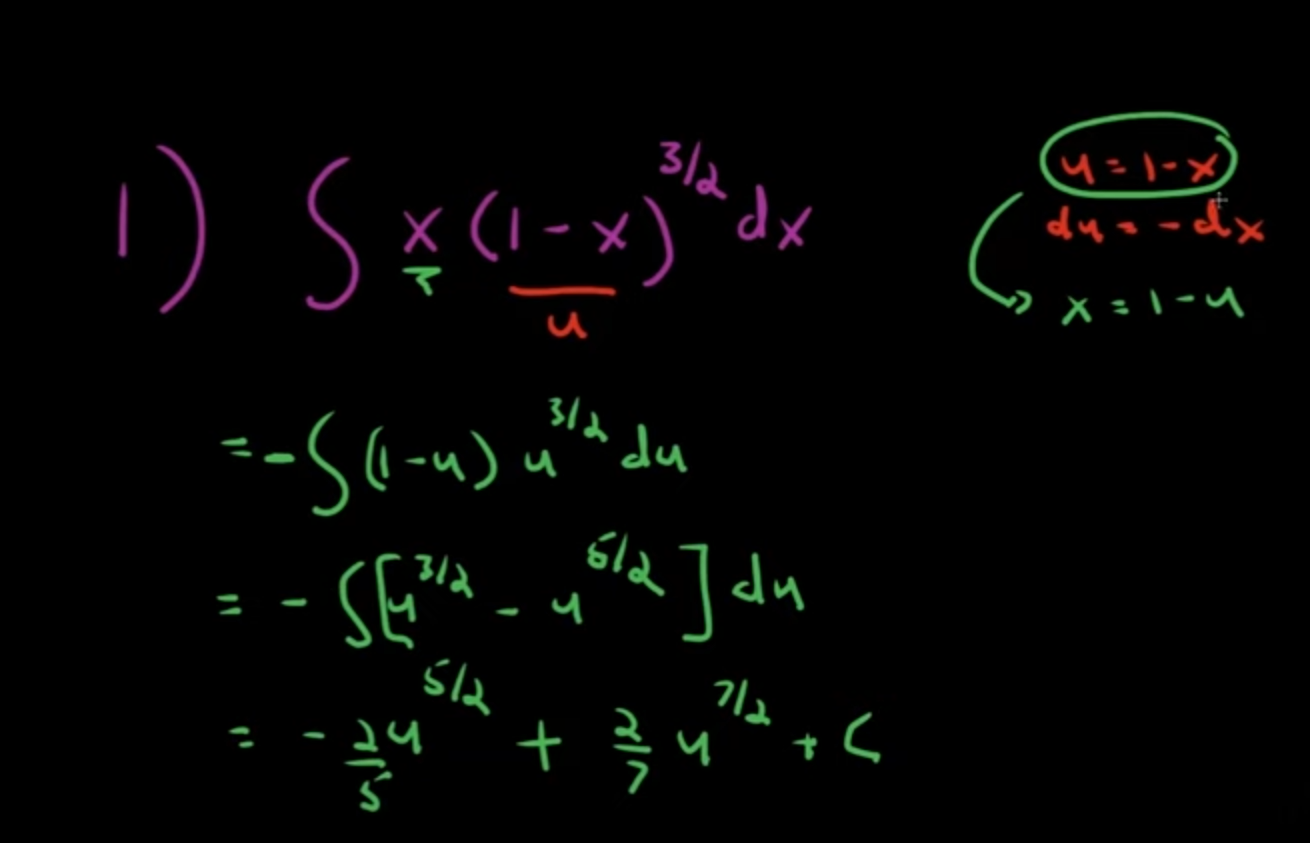 1) ∫ x (1 - x)^{3/2} dx
u
u = 1 - x
du = - dx
x = 1 - u
= - ∫ (1 - u) u^{3/2} du
= - ∫ [u^{3/2} - u^{5/2}] du
= - \frac{2}{5} u^{5/2} + \frac{2}{7} u^{7/2} + C